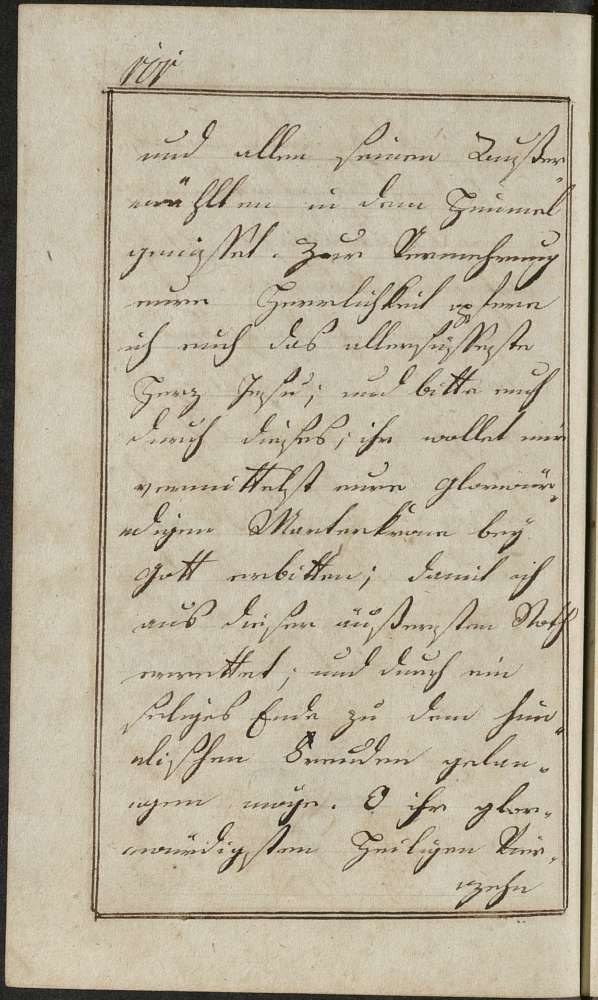 und allen seinen Außer„
wählten in dem Himmel
genießet. Zur Vermehrung
eurer Herrlichkeit opfere
ich euch das allersüßeste
Herz Jesu; und bitte euch
durch dieses, ihr wollet mir
vermittelst eurer glorwür„
digen Marterkrone bey
Gott erbitten; damit ich
aus dieser äußersten Noth
errettet; und durch ein
seliges Ende zu dem him„
mlischen Freuden gelan„
gen möge. O ihr glor„
würdigsten Heiligen Vier„
zehn